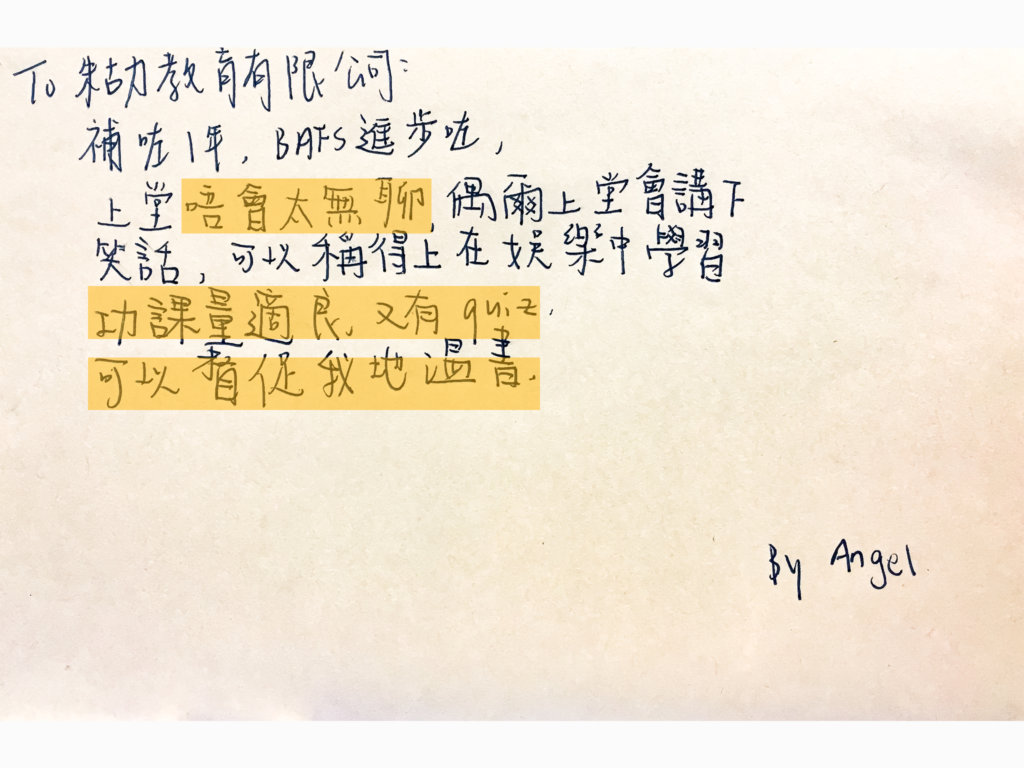 To 朱古力教育有限公司:
補咗1年, BAFS進步咗,
上堂唔會太無聊, 偶爾上堂會講下
笑話, 可以稱得上在娛樂中學習
功課量適良, 又有 quiz,
可以督促我地溫書.
By Angel